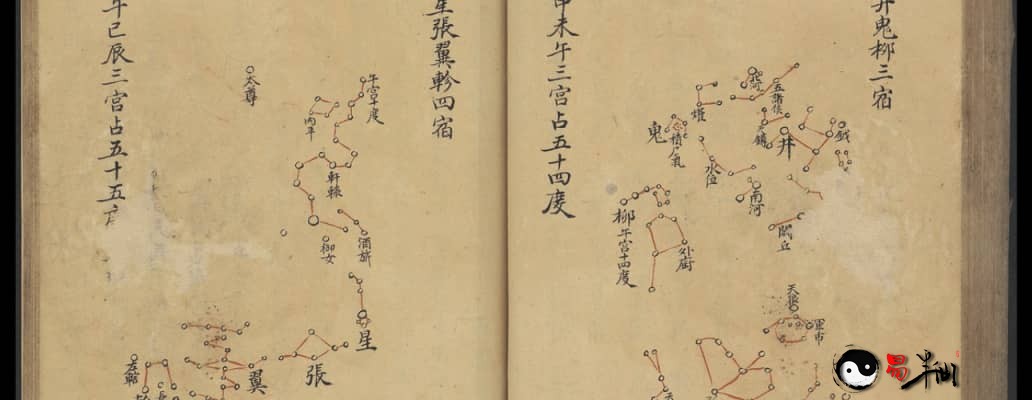 井鬼柳三宿
北河
五諸侯
爟
天鐏
井
鉞
鬼
積尸氣
水位
南河
闕丘
柳
午宮十四度
外厨
天狼
軍市
申未午三宮占五十四度
星張翼軫四宿
午宮十度
太尊
内平
軒轅
酒旗
御女
星
張
翼
午巳辰三宮占五十五度
易半仙